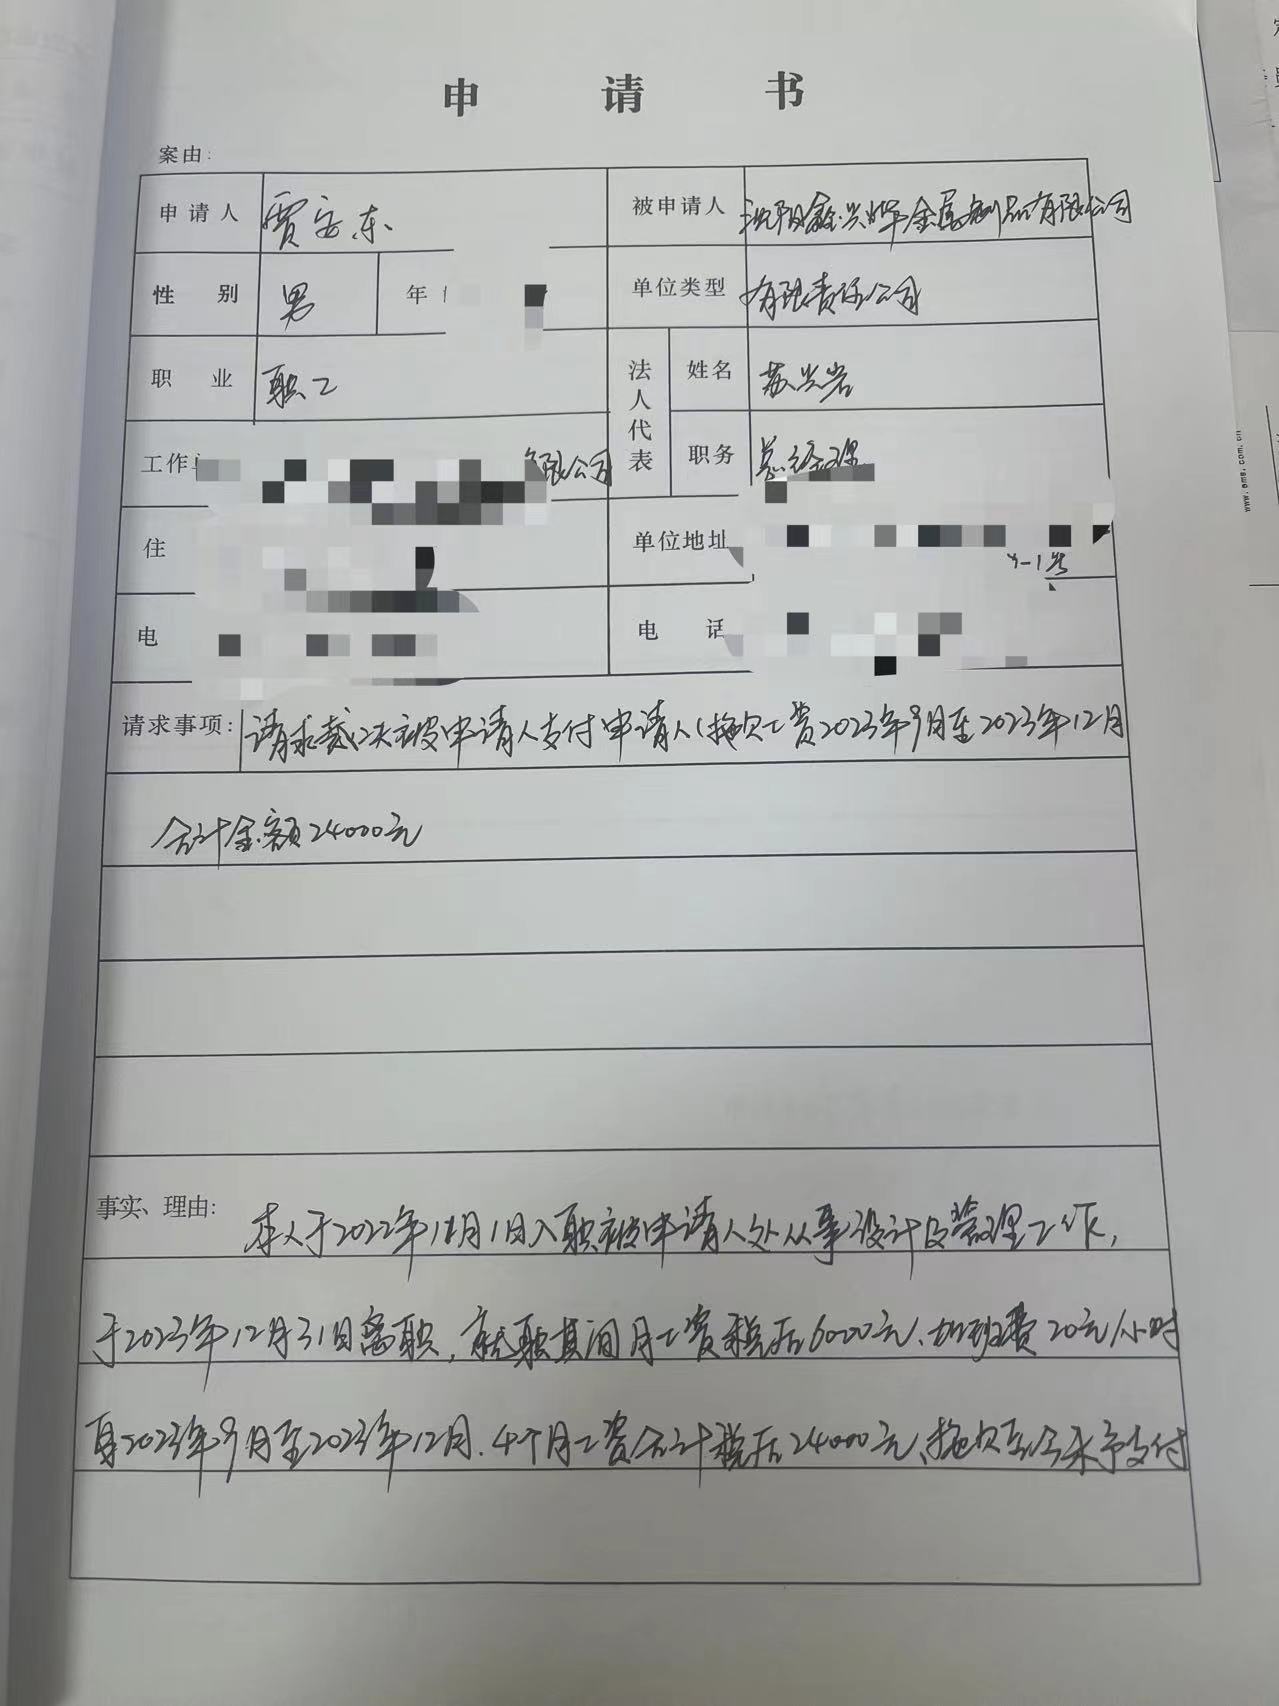 申请书
案由:
申请人 贾安东 被申请人 沈阳鑫兴晔金属制品有限公司
性别 男 年 单位类型 有限责任公司
职业 职工 法人代表 姓名 苏兴岩
工作 有限公司 职务 总经理
住 单位地址 -1号
电 电话
请求事项: 请求裁决被申请人支付申请人(拖欠工资2023年9月至2023年12月
合计金额24000元
事实、理由: 本人于2022年12月1日入职被申请人处从事设计及管理工作,
于2023年12月31日离职,就职其间月工资税后6000元、加班费20元/小时
自2023年9月至2023年12月.4个月工资合计税后24000元、拖欠至今未予支付
www.ems.com.cn